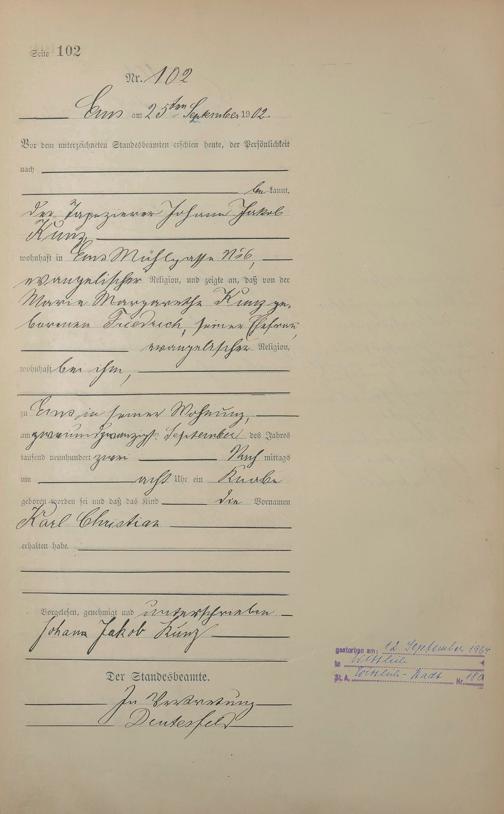 Seite 102
Nr. 102
Ems am 25ten September 1902.
Vor dem unterzeichneten Standesbeamten erschien heute, der Persönlichkeit
nach
be kannt,
der Tapezierer Johann Jakob
Kunz
wohnhaft in Ems Mühlgasse No 6,
evangelischer Religion, und zeigte an, daß von der
Marie Margarethe Kunz ge-
borenen Friedrich, seiner Ehefrau,
evangelischer Religion,
wohnhaft bei ihm,
zu Ems in seiner Wohnung,
am zweiundzwanzigst September des Jahres
tausend neunhundert zwei Nach mittags
um acht Uhr ein Knabe
geboren worden sei und daß das Kind die Vornamen
Karl Christian
erhalten habe.
Vorgelesen, genehmigt und unterschrieben
Johann Jakob Kunz
Der Standesbeamte.
In Vertretung
gestorben am: 12. September 1964
in Wittlich
St. A. Wittlich-Stadt Nr. 180